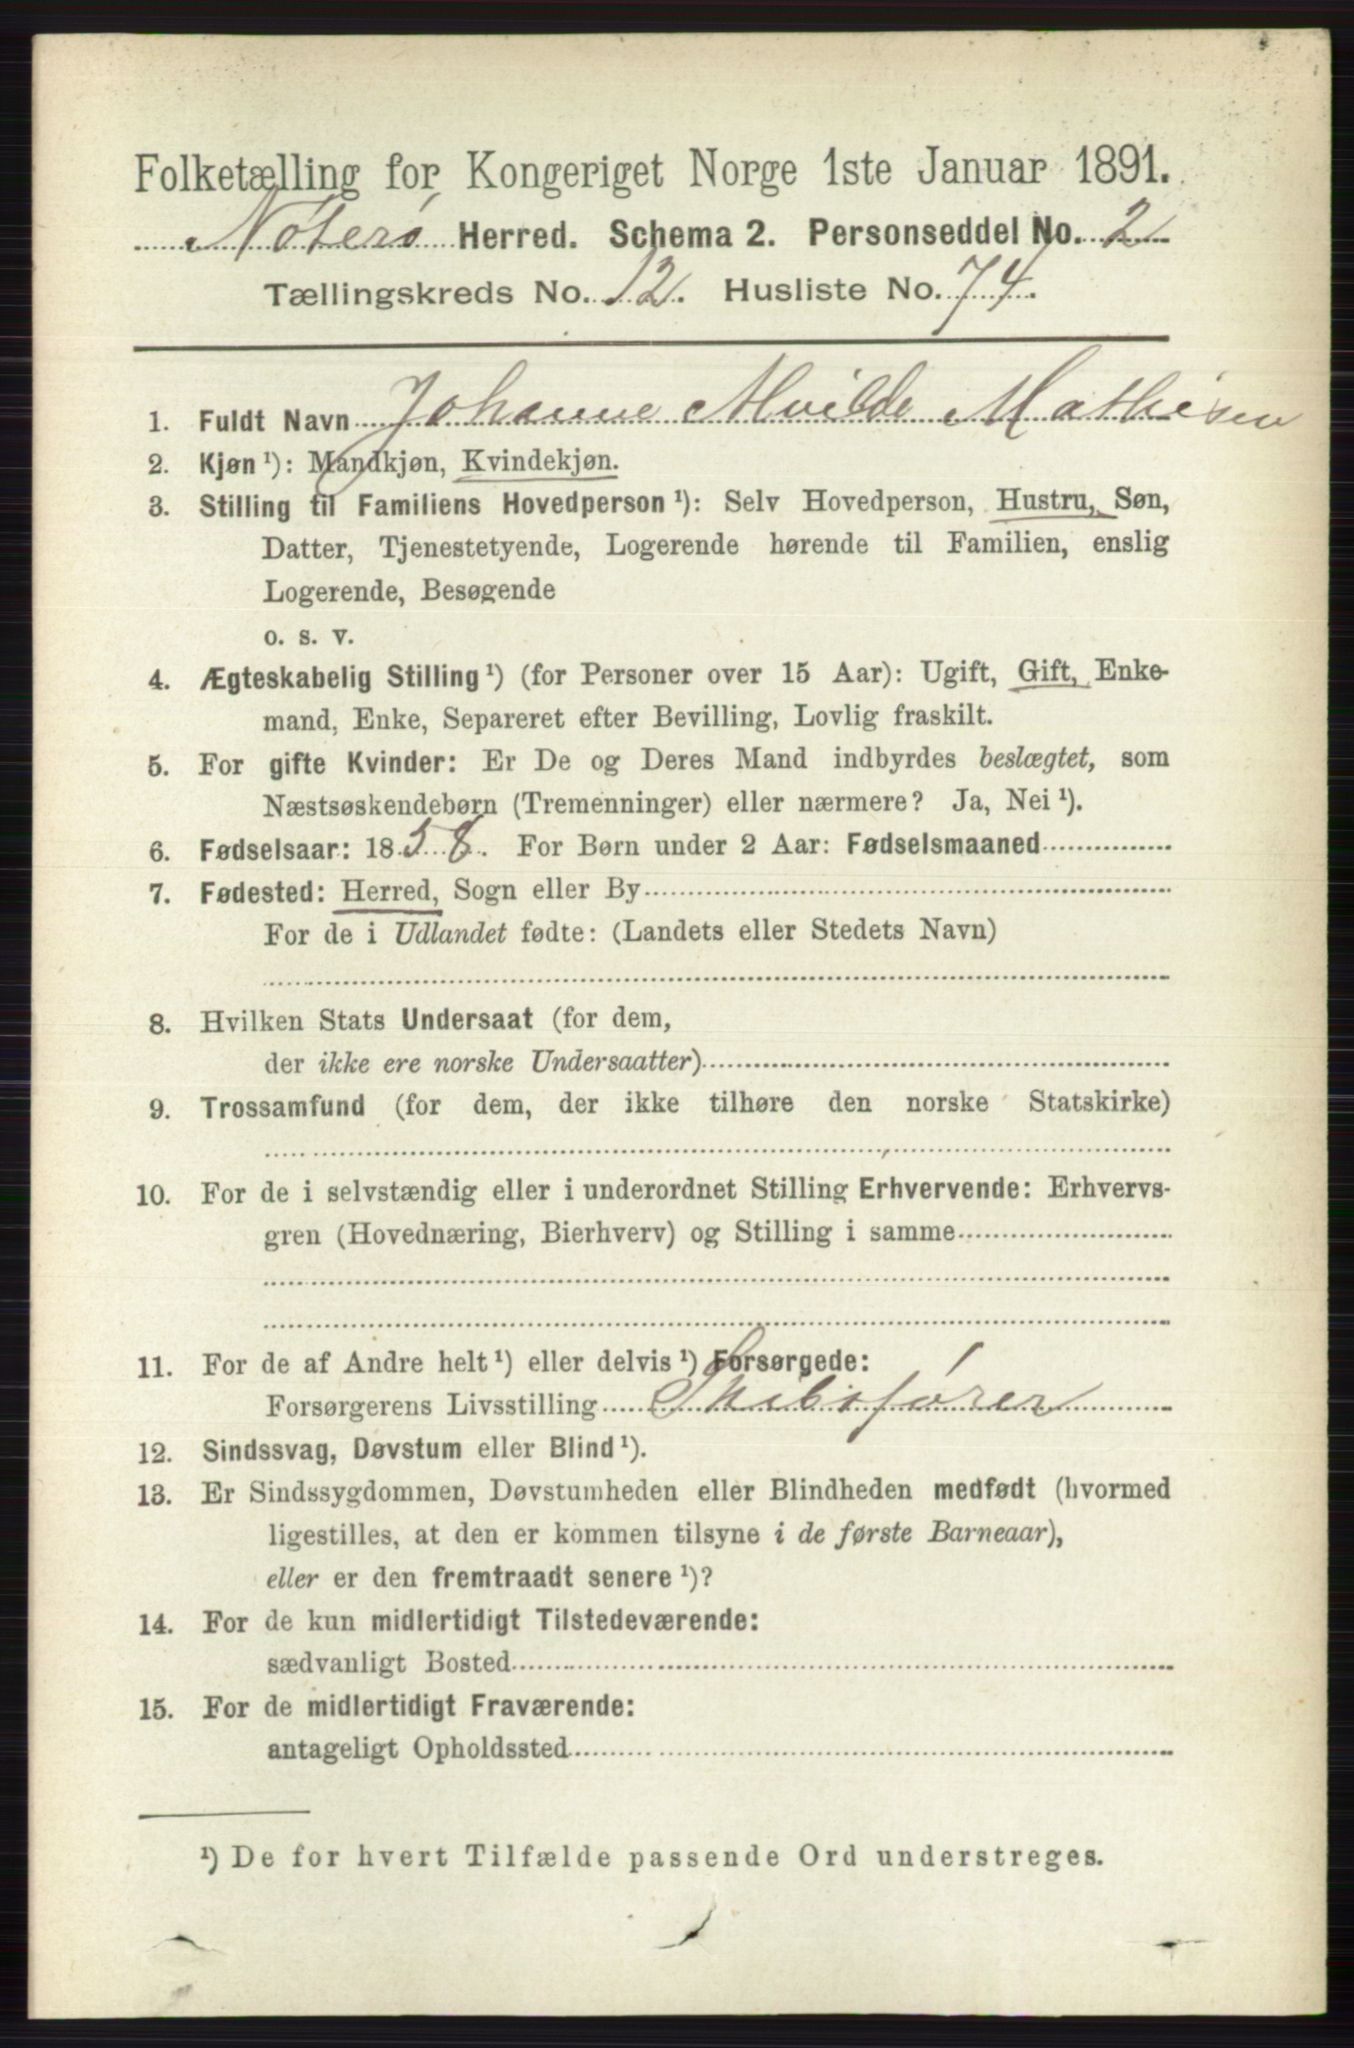 Folketælling for Kongeriget Norge 1ste Januar 1891.
Nøterø Herred. Schema 2. Personseddel No. 2
Tællingskreds No. 12. Husliste No. 74.
1. Fuldt Navn Johanne Alvilde Mathisen
2. Kjøn ¹): Mandkjøn, Kvindekjøn.
3. Stilling til Familiens Hovedperson ¹): Selv Hovedperson, Hustru, Søn,
Datter, Tjenestetyende, Logerende hørende til Familien, enslig
Logerende, Besøgende
o. s. v.
4. Ægteskabelig Stilling ¹) (for Personer over 15 Aar): Ugift, Gift, Enke-
mand, Enke, Separeret efter Bevilling, Lovlig fraskilt.
5. For gifte Kvinder: Er De og Deres Mand indbyrdes beslægtet, som
Næstsøskendebørn (Tremenninger) eller nærmere? Ja, Nei ¹).
6. Fødselsaar: 1858. For Børn under 2 Aar: Fødselsmaaned
7. Fødested: Herred, Sogn eller By
For de i Udlandet fødte: (Landets eller Stedets Navn)
8. Hvilken Stats Undersaat (for dem,
der ikke ere norske Undersaatter)
9. Trossamfund (for dem, der ikke tilhøre den norske Statskirke)
10. For de i selvstændig eller i underordnet Stilling Erhvervende: Erhvervs-
gren (Hovednæring, Bierhverv) og Stilling i samme
11. For de af Andre helt ¹) eller delvis ¹) Forsørgede:
Forsørgerens Livsstilling Skibsfører
12. Sindssvag, Døvstum eller Blind ¹).
13. Er Sindssygdommen, Døvstumheden eller Blindheden medfødt (hvormed
ligestilles, at den er kommen tilsyne i de første Barneaar),
eller er den fremtraadt senere ¹)?
14. For de kun midlertidigt Tilstedeværende:
sædvanligt Bosted
15. For de midlertidigt Fraværende:
antageligt Opholdssted
¹) De for hvert Tilfælde passende Ord understreges.